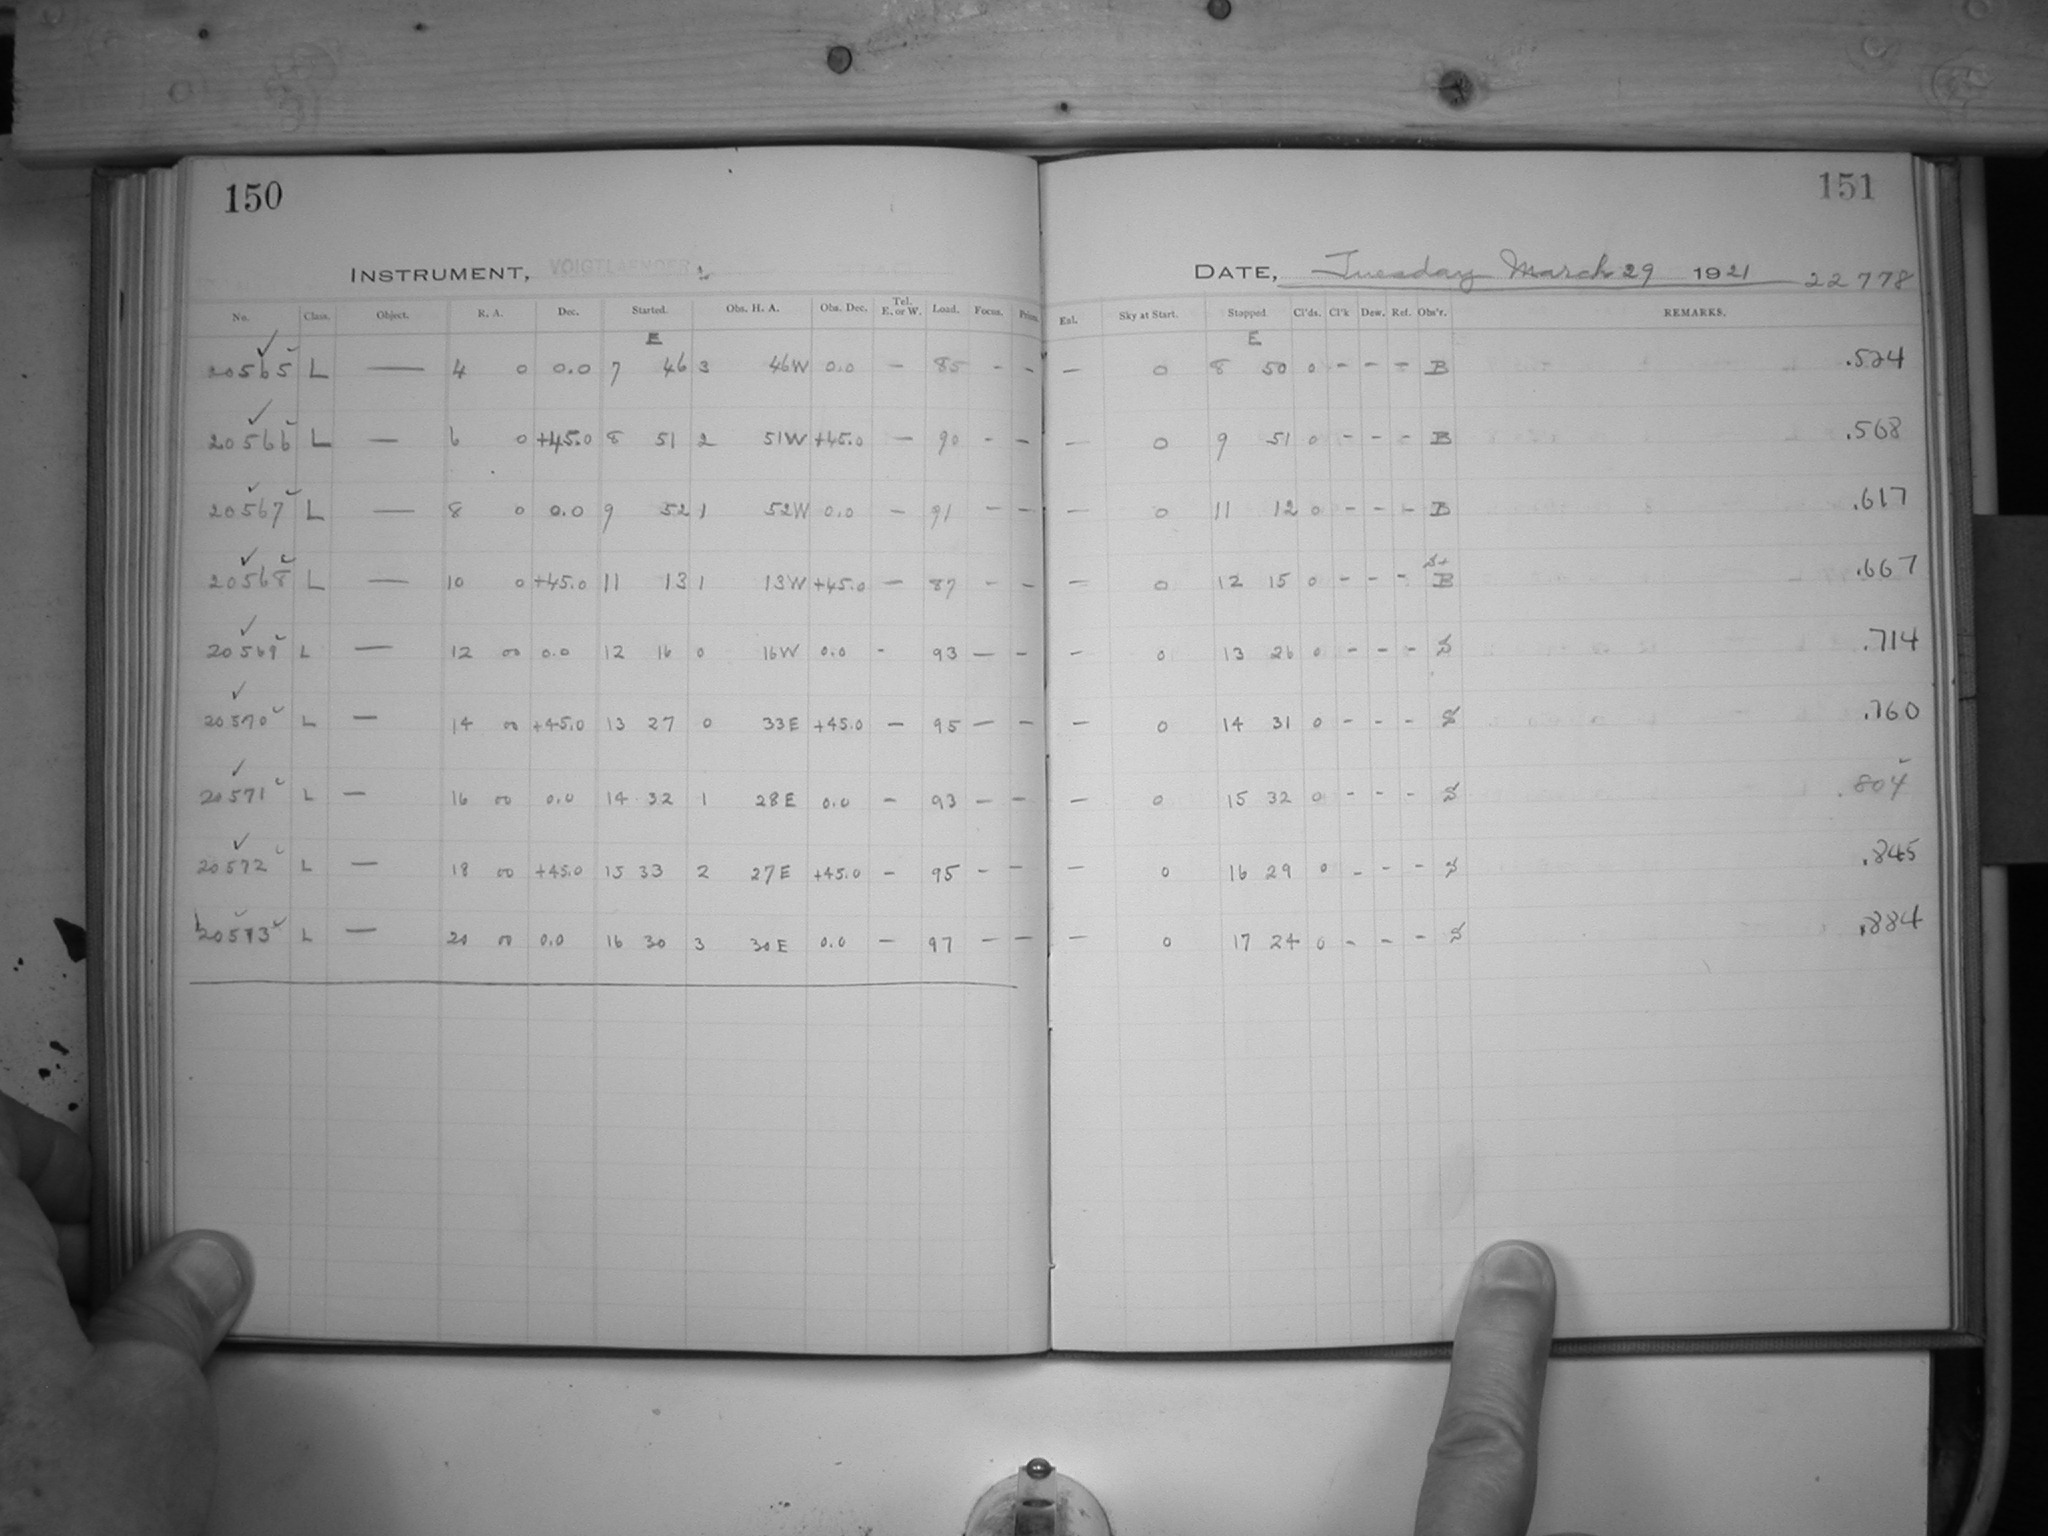 150
151
INSTRUMENT, VOIGTLAENDER
DATE, Tuesday March 29 1921 22778
No. Class. Object. R. A. Dec. Started. Obs. H. A. Obs. Dec. Tel. E. or W. Load. Focus. Prism. Enl. Sky at Start. Stopped. Cl'ds. Cl'k Dew. Ref. Obs'r. REMARKS.
E E
20565 L — 4 0 0.0 7 46 3 46W 0.0 — 85 - - — 0 8 50 0 - - - B .524
20566 L — 6 0 +45.0 8 51 2 51W +45.0 — 90 - - — 0 9 51 0 - - - B .568
20567 L — 8 0 0.0 9 52 1 52W 0.0 — 91 - - — 0 11 12 0 - - - B .617
20568 L — 10 0 +45.0 11 13 1 13W +45.0 — 87 - - — 0 12 15 0 - - - S+B .667
20569 L — 12 00 0.0 12 16 0 16W 0.0 - 93 — - — 0 13 26 0 - - - S .714
20570 L — 14 00 +45.0 13 27 0 33E +45.0 — 95 — - — 0 14 31 0 - - - S .760
20571 L — 16 00 0.0 14 32 1 28E 0.0 — 93 — - — 0 15 32 0 - - - S .804
20572 L — 18 00 +45.0 15 33 2 27E +45.0 — 95 - - — 0 16 29 0 - - - S .845
20573 L — 20 00 0.0 16 30 3 30E 0.0 — 97 — - — 0 17 24 0 - - - S .884